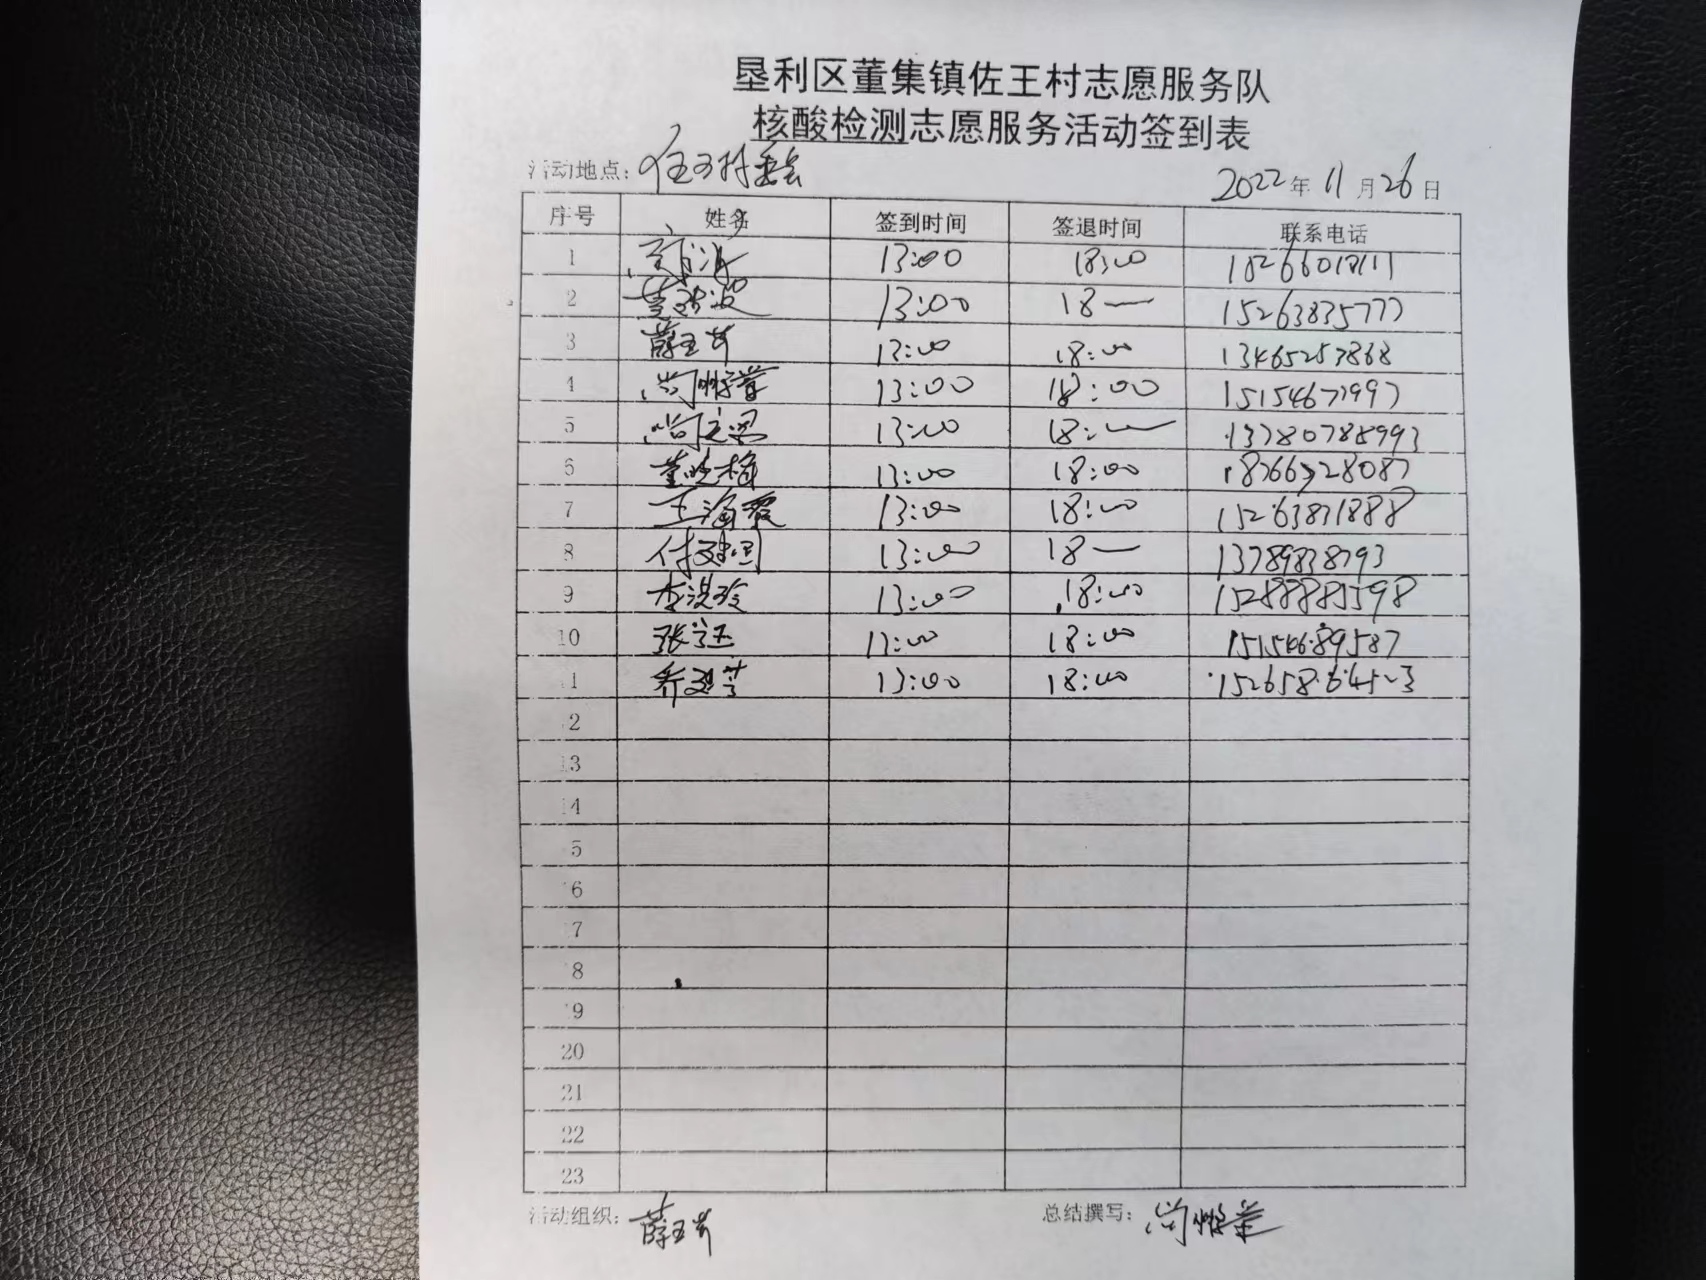 垦利区董集镇佐王村志愿服务队
核酸检测志愿服务活动签到表
活动地点：佐王村委会
2022年11月26日
序号 姓名 签到时间 签退时间 联系电话
1 13:00 18:00 18266018111
2 13:00 18— 15263835777
3 薛玉芳 13:00 18:00 13465257868
4 13:00 18:00 15154671997
5 13:00 18:00 13780788993
6 董晓梅 13:00 18:00
7 王海霞 13:00 18:00 15263831888
8 付建国 13:00 18— 13789838793
9 13:00 18:00 15288885598
10 13:00 18:00 15154689587
11 乔 13:00 18:00
12
13
14
15
16
17
18
19
20
21
22
23
活动组织：薛玉芳 总结撰写：